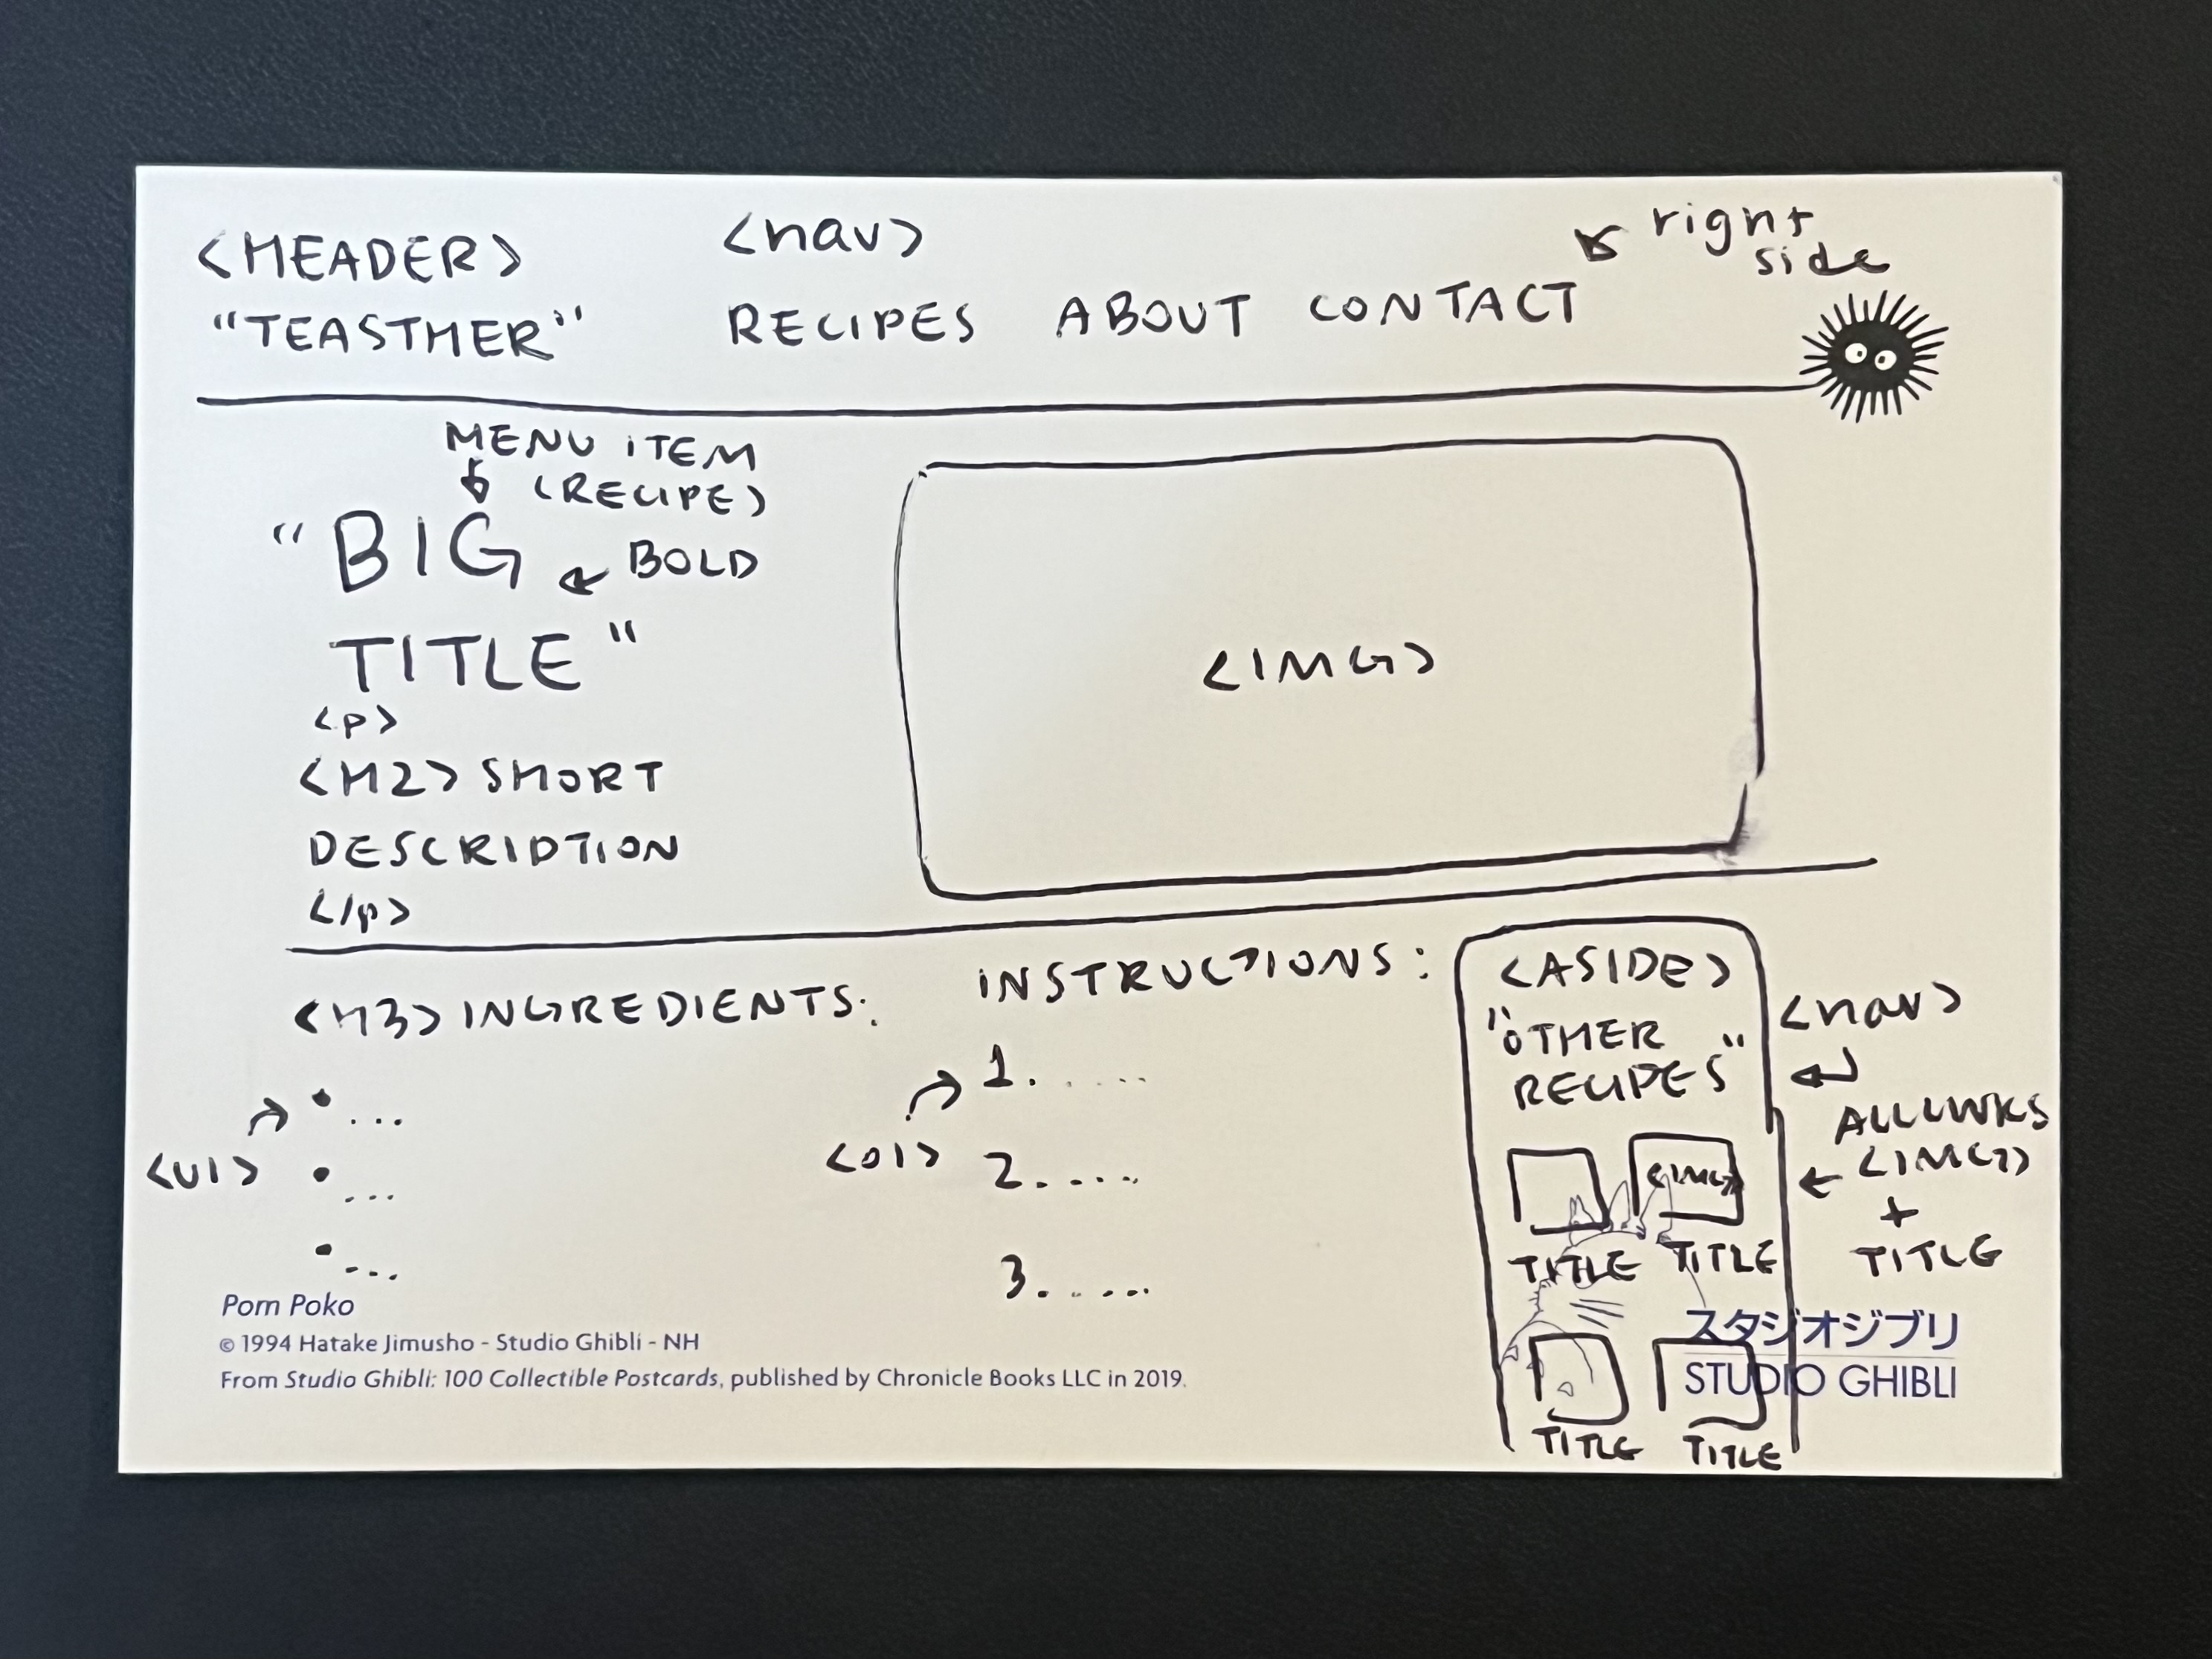 <HEADER>
"TEASTHER"
<nav>
RECIPES ABOUT CONTACT
right
side
MENU iTEM
(RECIPE)
"BIG
BOLD
TITLE"
<p>
<H2> SHORT
DESCRIPTION
</p>
<IMG>
<H3> INGREDIENTS:
• ...
<ul>
• ...
• ...
iNSTRUCTIONS:
1. .....
<ol>
2. ....
3. .....
<ASIDE>
"OTHER
RECIPES"
<nav>
ALL LINKS
<IMG>
+
TITLE
<IMG>
TITLE TITLE
TITLE TITLE
Pom Poko
© 1994 Hatake Jimusho - Studio Ghibli - NH
From Studio Ghibli: 100 Collectible Postcards, published by Chronicle Books LLC in 2019.
スタジオジブリ
STUDIO GHIBLI